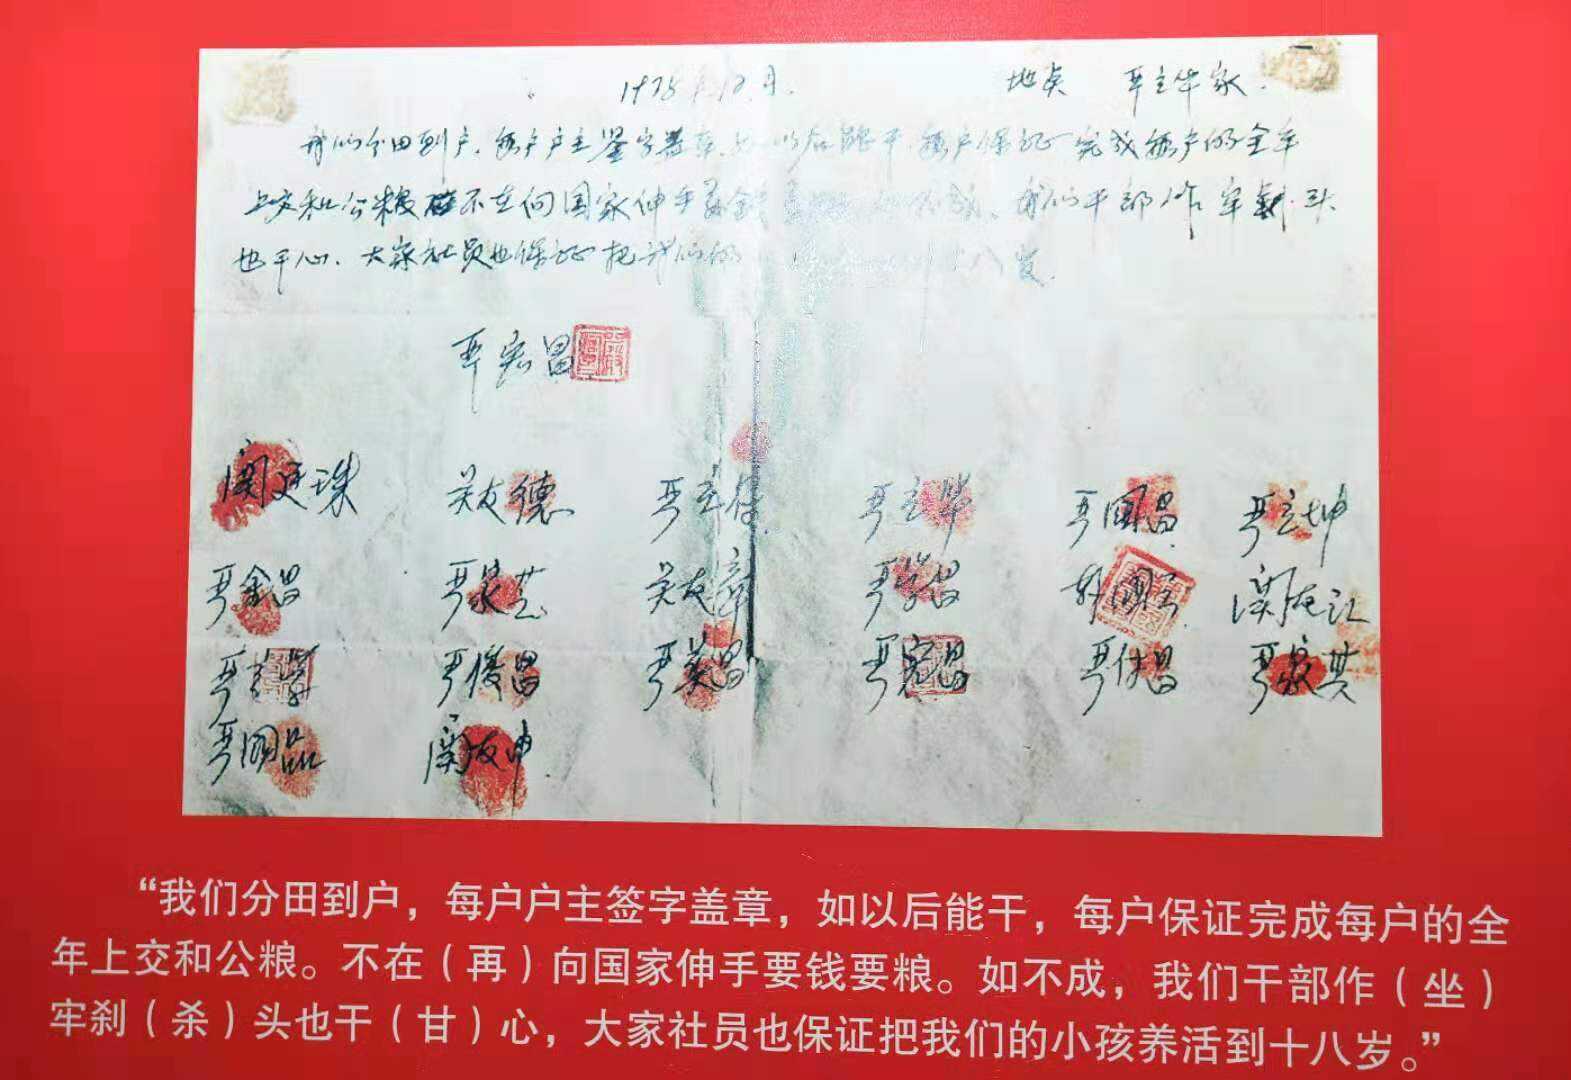 1978年12月. 地点 严立华家.
我们分田到户,每户户主签字盖章,如以后能干,每户保证完成每户的全年
上交和公粮不在向国家伸手要钱 我们干部作牢刹头
也干心,大家社员也保证把我们的 八岁.
严宏昌
关廷珠 关友德 严立符 严立华 严国昌 严立坤
严金昌 严家芝 关友章 严学昌 韩国云 关友江
严立学 严俊昌 严美昌 严宏昌 严付昌 严家其
严国品 关友申
“我们分田到户，每户户主签字盖章，如以后能干，每户保证完成每户的全
年上交和公粮。不在（再）向国家伸手要钱要粮。如不成，我们干部作（坐）
牢刹（杀）头也干（甘）心，大家社员也保证把我们的小孩养活到十八岁。”